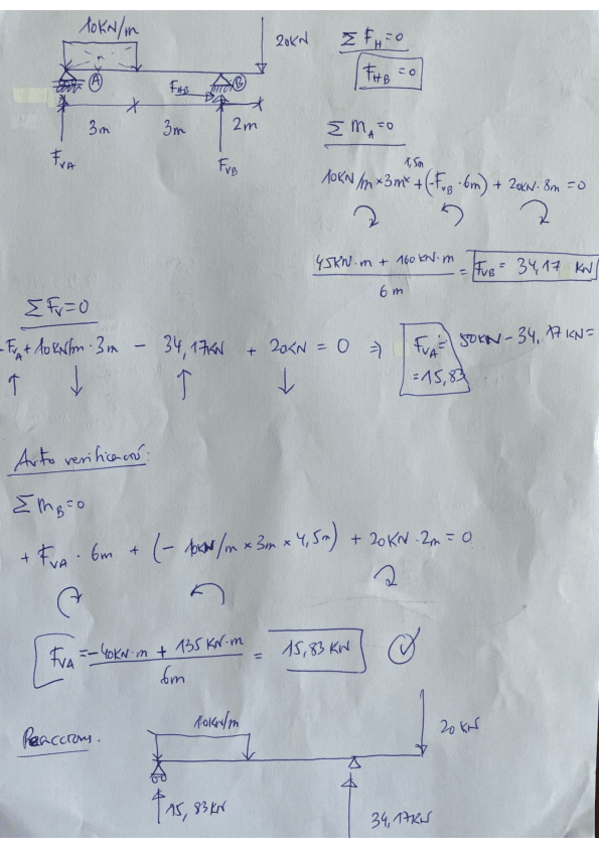 10KN/m
20KN
A
F_HB
B
3m 3m 2m
F_VA
F_VB
Σ F_H = 0
F_HB = 0
Σ M_A = 0
10KN/m × 3m × 1,5m + (-F_VB · 6m) + 20KN · 8m = 0
45KN·m + 160KN·m / 6m = F_VB = 34,17 KN
Σ F_V = 0
-F_VA + 10KN/m · 3m - 34,17KN + 20KN = 0 ⇒ F_VA = 50KN - 34,17KN =
= 15,83
Auto verificació:
Σ M_B = 0
+ F_VA · 6m + (- 10KN/m × 3m × 4,5m) + 20KN · 2m = 0
F_VA = -40KN·m + 135KN·m / 6m = 15,83 KN
Reaccions.
10KN/m
20 KN
15,83KN
34,17KN